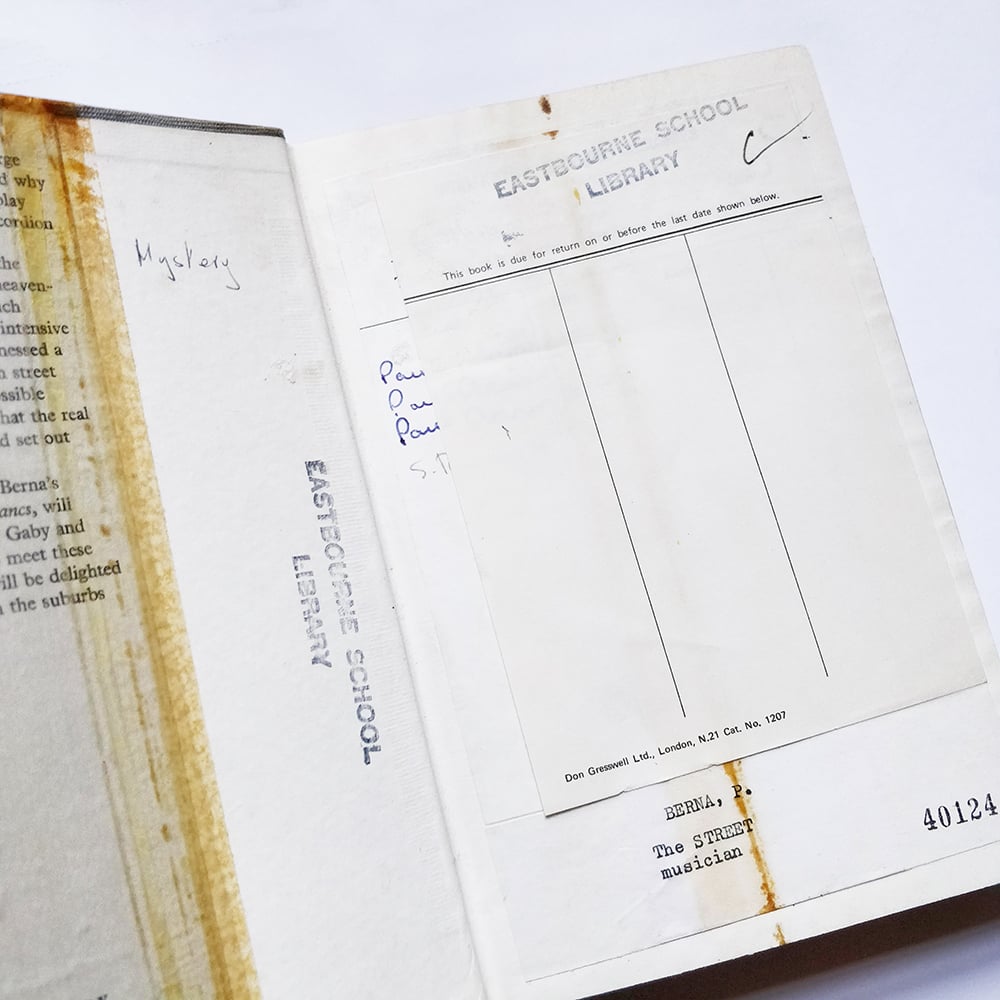 why
play
cordion
the
intensive
a
street
that the real
set out
Berna's
will
Gaby and
meet these
will be delighted
the suburbs
Mystery
EASTBOURNE SCHOOL
LIBRARY
EASTBOURNE SCHOOL
LIBRARY
This book is due for return on or before the last date shown below.
Pau
Pau
Don Gresswell Ltd., London, N.21 Cat. No. 1207
BERNA, P.
The STREET
musician
40124